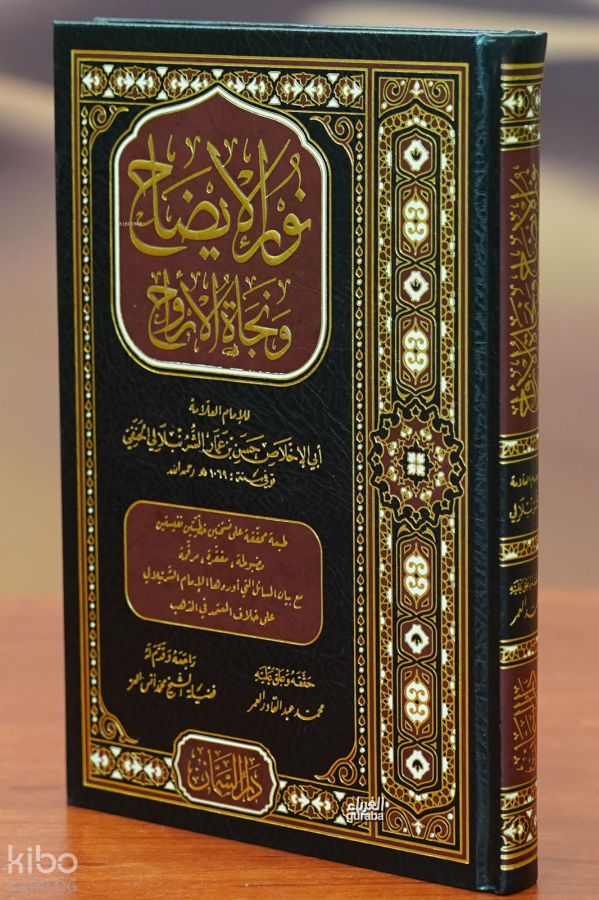 نُورُ الْإِيضَاحِ
وَنَجَاةُ الْأَرْوَاحِ
للإمام العلّامة
أبي الإخلاص حسن بن عمار الشرنبلالي الحنفي
توفي سنة: ١٠٦٩هـ رحمه الله
طبعة محققة على نسختين خطيتين نفيستين
مضبوطة، مفقرة، مرقمة
مع بيان المسائل التي أوردها الإمام الشرنبلالي
على خلاف المعتمد في المذهب
حققه وعلق عليه
محمد عبد القادر العمر
راجعه وقدم له
فضيلة الشيخ محمد أنس العمر
دار السمان
الغرباء
guraba
kibo
KATALOG